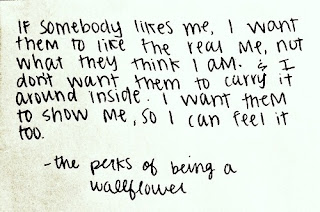 IF somebody likes me, I want
them to like the real me, not
what they think I am. & I
don't want them to carry it
around inside. I want them
to show me, so I can feel it
too.
-the perks of being a
wallflower